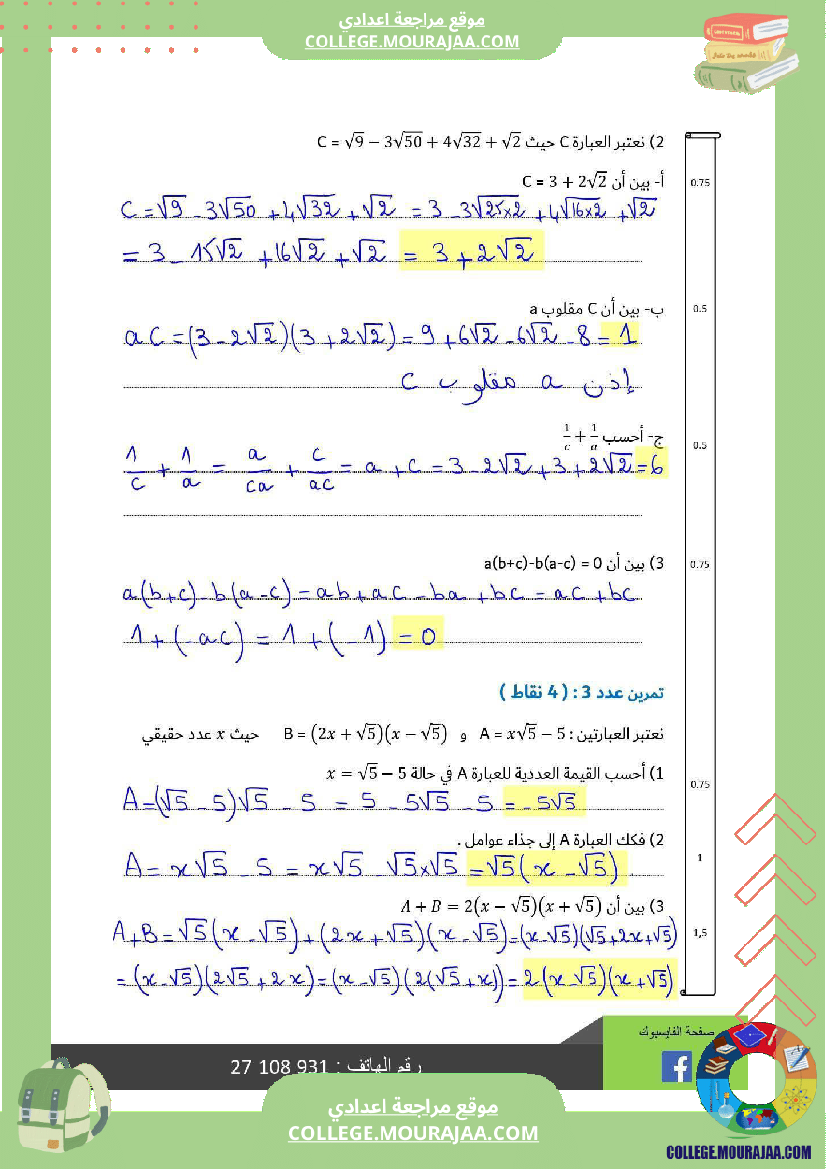 موقع مراجعة اعدادي
COLLEGE.MOURAJAA.COM
2) نعتبر العبارة C حيث C = √9 − 3√50 + 4√32 + √2
أ- بين أن C = 3 + 2√2
0.75
C = √9 - 3√50 + 4√32 + √2 = 3 - 3√(25×2) + 4√(16×2) + √2
= 3 - 15√2 + 16√2 + √2 = 3 + 2√2
ب- بين أن C مقلوب a
0.5
aC = (3 - 2√2)(3 + 2√2) = 9 + 6√2 - 6√2 - 8 = 1
إذن a مقلوب C
ج- أحسب 1/c + 1/a
0.5
1/c + 1/a = a/ca + c/ac = a + c = 3 - 2√2 + 3 + 2√2 = 6
3) بين أن a(b+c)-b(a-c) = 0
0.75
a(b+c) - b(a-c) = ab + ac - ba + bc = ac + bc
1 + (-ac) = 1 + (-1) = 0
تمرين عدد 3 : ( 4 نقاط )
نعتبر العبارتين : A = x√5 − 5 و B = (2x + √5)(x − √5) حيث x عدد حقيقي
1) أحسب القيمة العددية للعبارة A في حالة x = √5 − 5
0.75
A = (√5 - 5)√5 - 5 = 5 - 5√5 - 5 = -5√5
2) فكك العبارة A إلى جذاء عوامل .
1
A = x√5 - 5 = x√5 - √5×√5 = √5(x - √5)
3) بين أن A + B = 2(x − √5)(x + √5)
1,5
A+B = √5(x - √5) + (2x + √5)(x - √5) = (x-√5)(√5+2x+√5)
= (x-√5)(2√5 + 2x) = (x-√5)(2(√5+x)) = 2(x-√5)(x+√5)
صفحة الفايسبوك
رقم الهاتف : 27 108 931
موقع مراجعة اعدادي
COLLEGE.MOURAJAA.COM
COLLEGE.MOURAJAA.COM